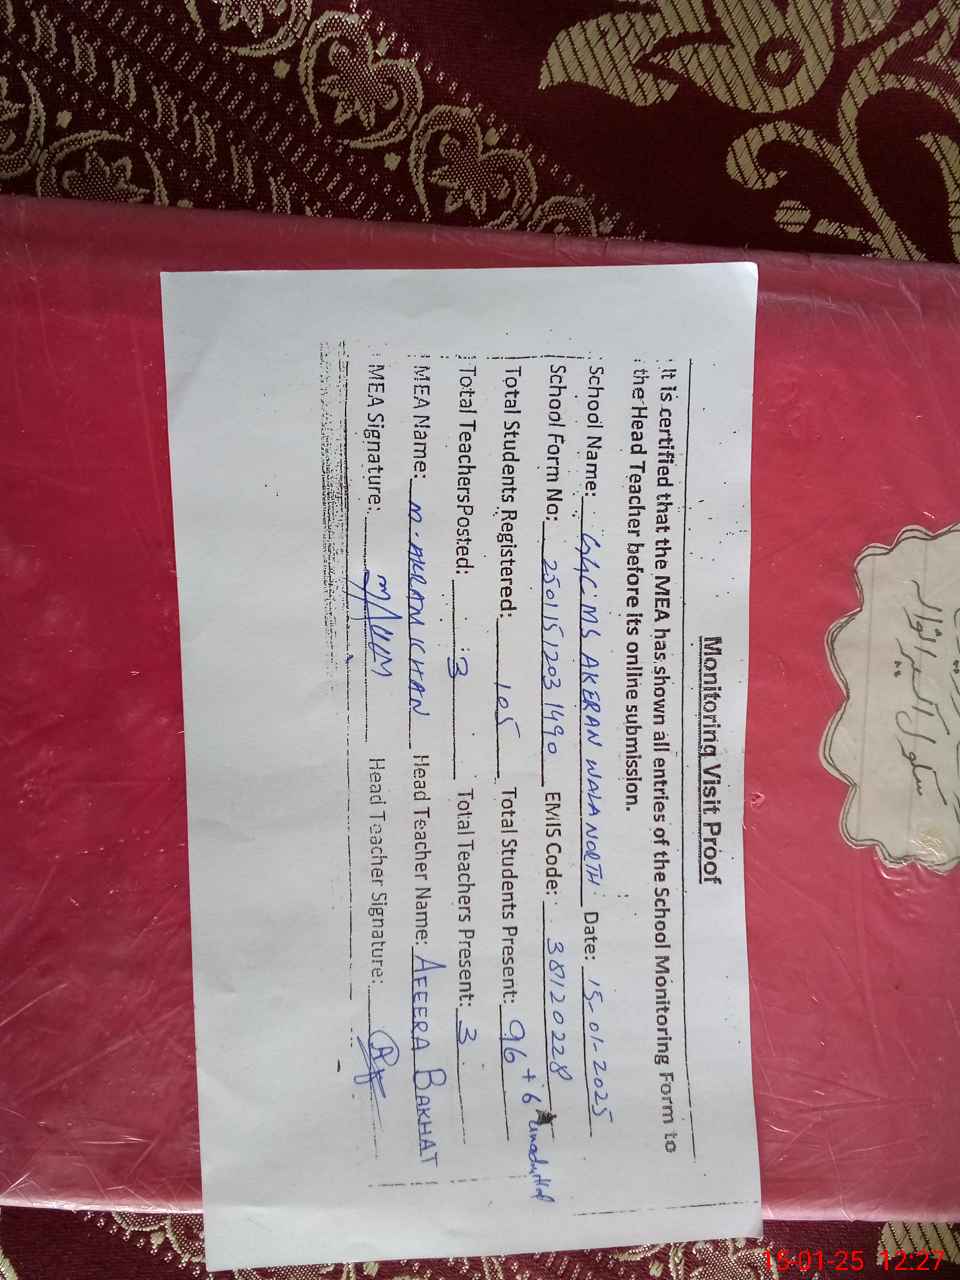 Monitoring Visit Proof
It is certified that the MEA has shown all entries of the School Monitoring Form to
the Head Teacher before its online submission.
School Name: GGCMS AKERAN WALA NORTH Date: 15-01-2025
School Form No: 2501151203 1490 EMIS Code: 38120228
Total Students Registered: 105 Total Students Present: 96 + 6
Total TeachersPosted: 3 Total Teachers Present: 3
MEA Name: M. AKRAM KHAN Head Teacher Name: AFEERA BAKHAT
MEA Signature: Head Teacher Signature:
15-01-25 12:27